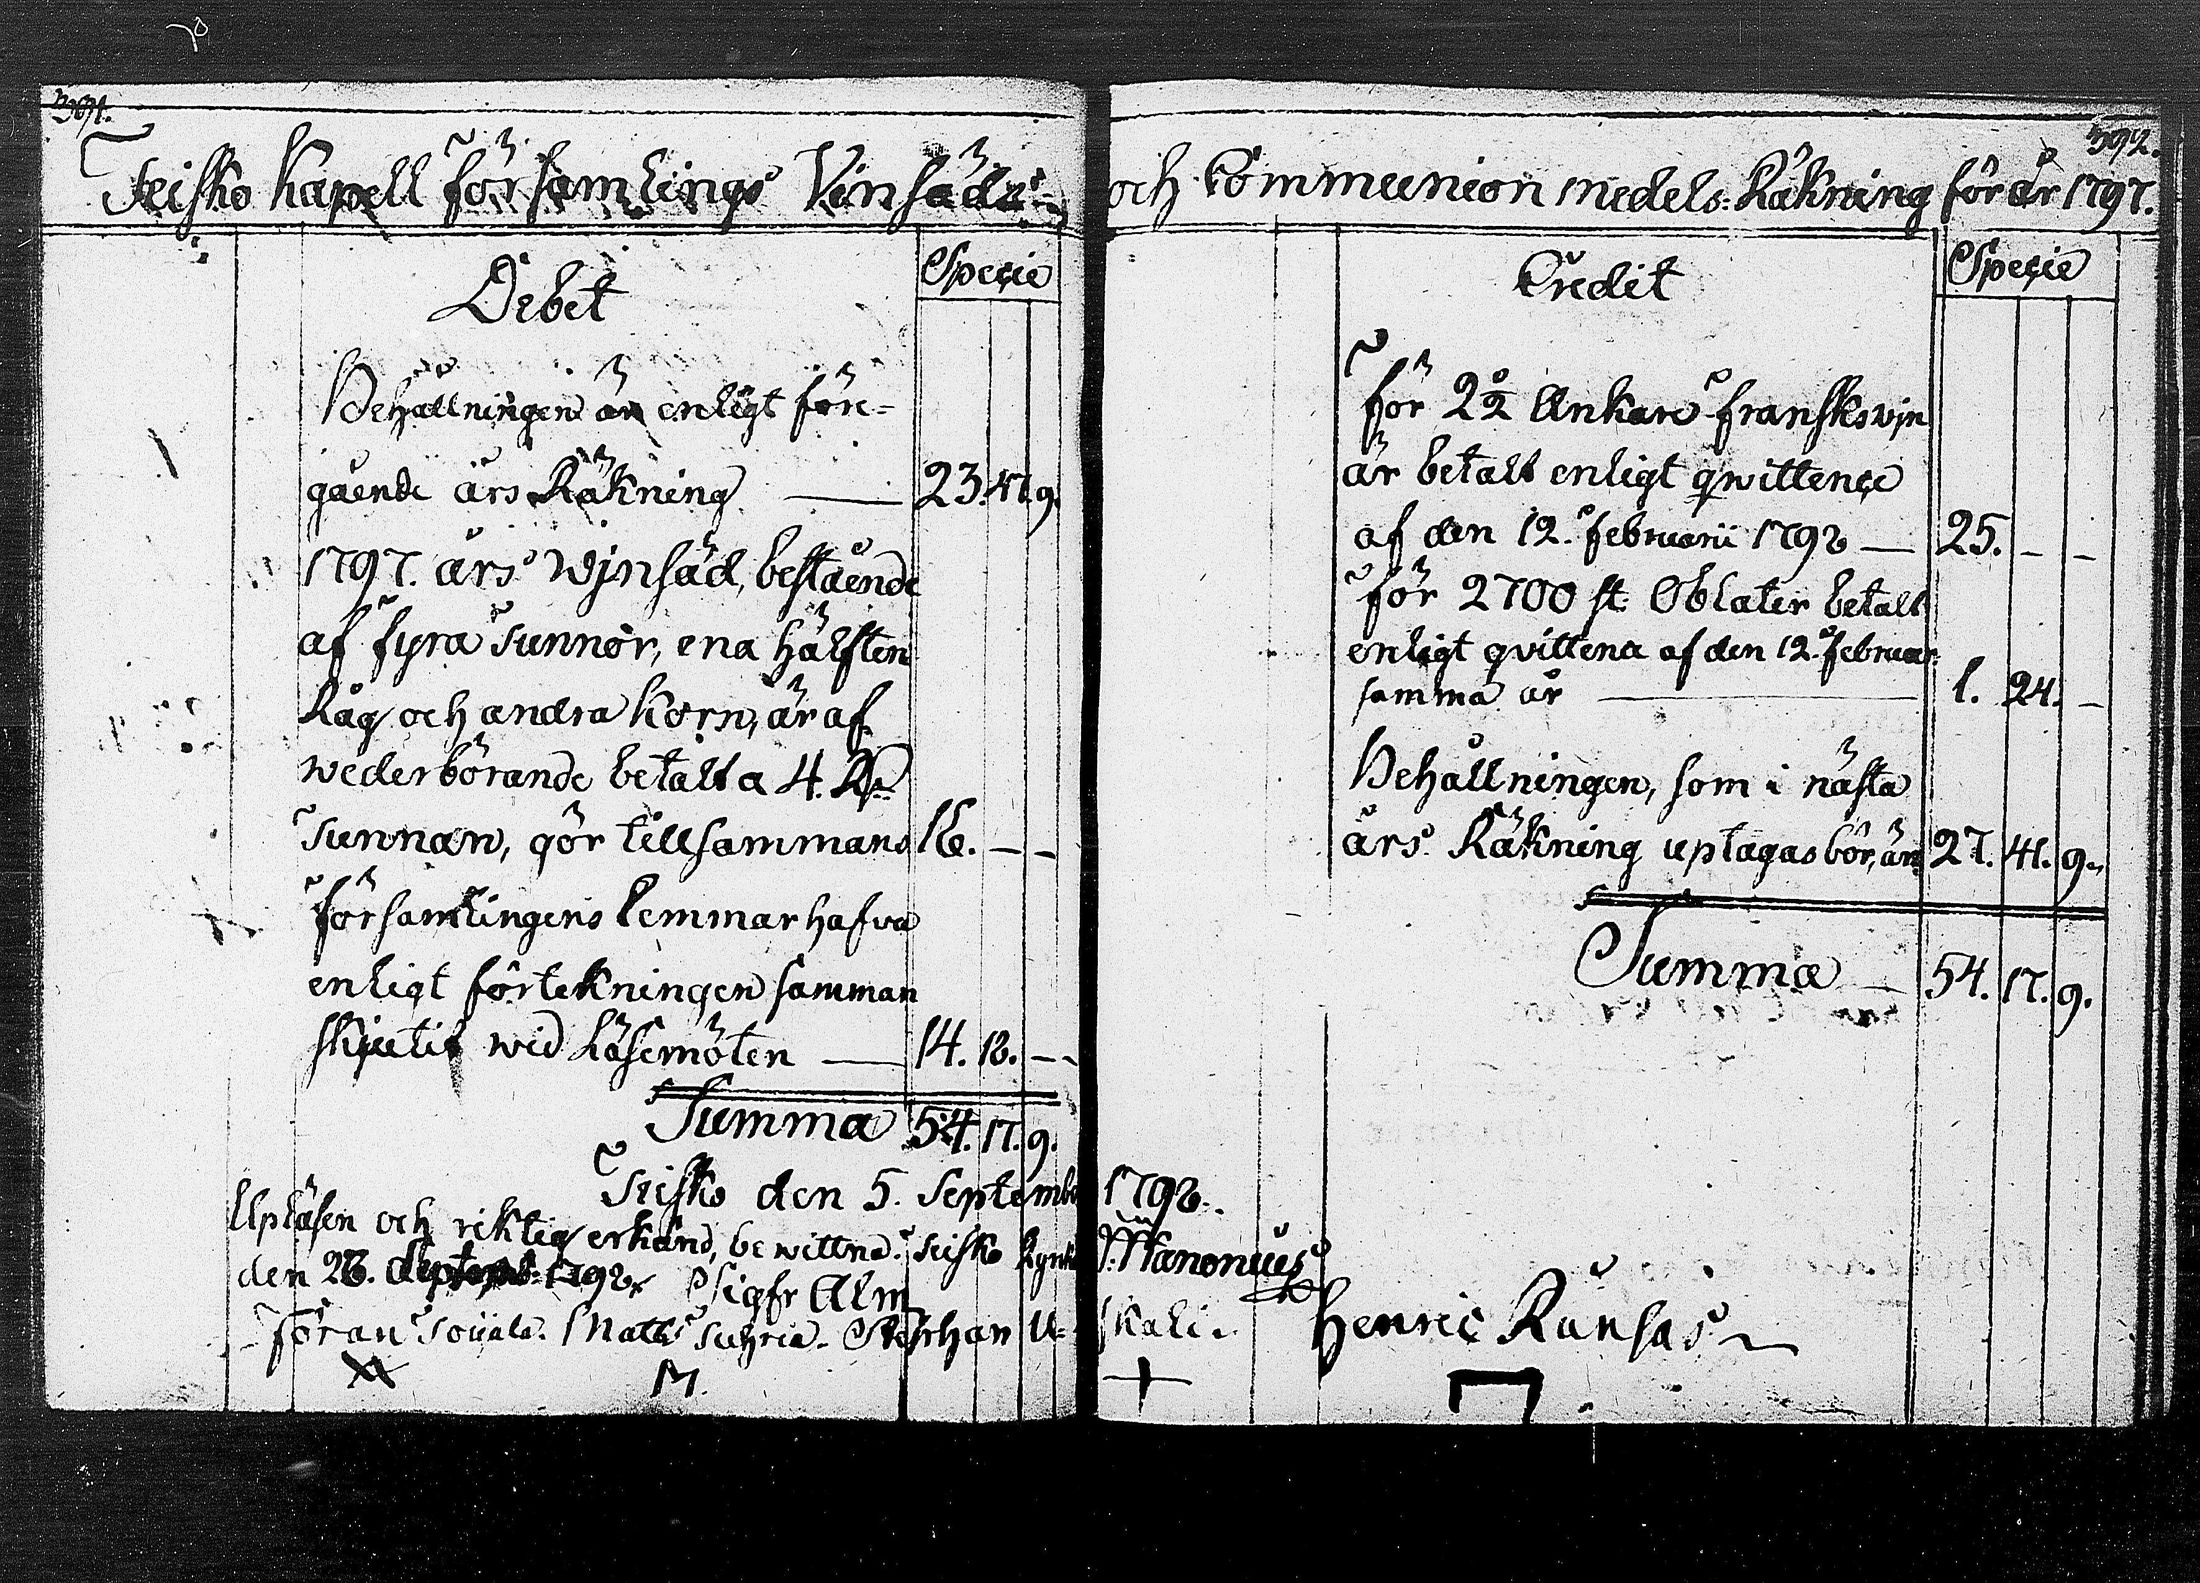 391.
Teisko Kapell Församlings Vinsäds-
Debet
Specie
Behållningen är enligt före-
gående års Räkning — 23. 47. 9.
1797. års Wjnsäd, bestående
af fyra Tunnor, ena hälften
Råg och andra Korn, är af
wederbörande betalt a 4. Rd
Tunnan, gör tillsammans 16. — —
Församlingens Lemmar hafva
enligt förtekningen samman
skjutit wid Läsemöten — 14. 18. — —
Summa 54. 17. 9.
Teisko den 5. Septembr
Upläsen och riktig erkänd, bewittna. Teisko
den 26. Septembr 1798. Sigfr Alm
Matts Stephan U-
M.
392.
och Communion medels Räkning för år 1797.
Credit
Specie
För 2½ Ankare Franskt wjn
är betalt enligt qwittence
af den 12. Februarii 1798 — 25. — —
För 2700 st. Oblater betalt
enligt qvittence af den 12. Februar.
samma år — 1. 24. —
Behållningen, som i nästa
års Räkning uptagas bör, är 27. 41. 9.
Summa — 54. 17. 9.
1798.
skali.
Henric